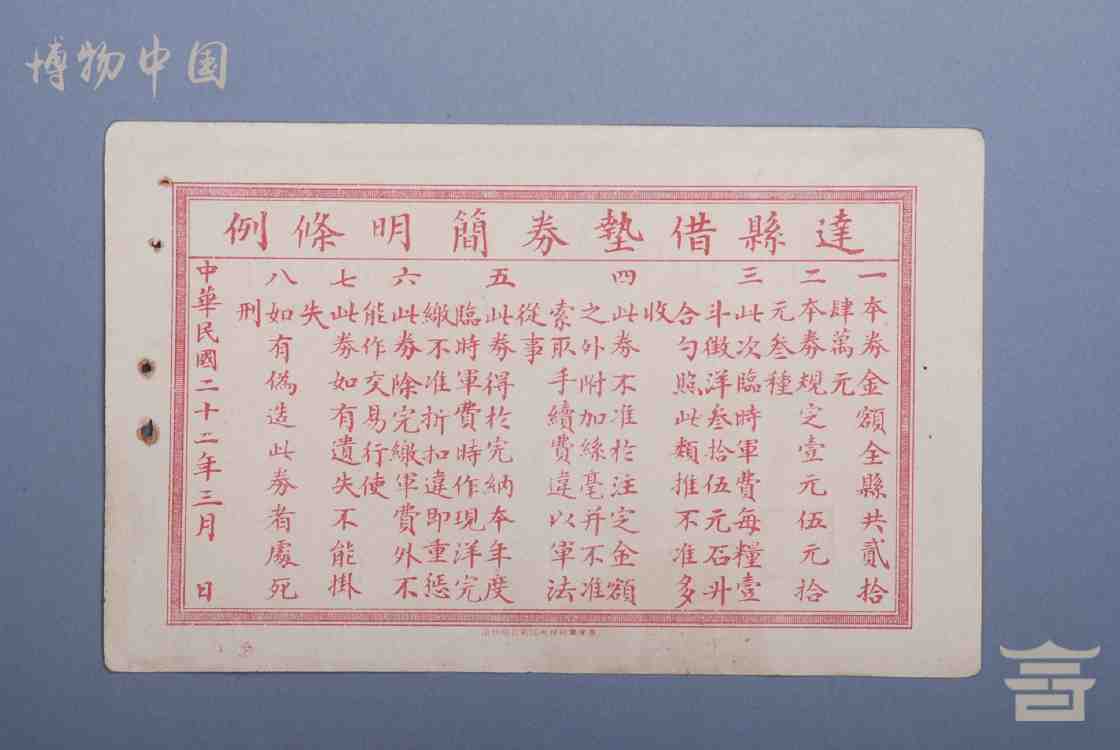 博物中国
達縣借墊券簡明條例
一 本券金額全縣共貳拾
肆萬元
二 本券規定壹元伍元拾
元叁種
三 此次臨時軍費每糧壹
斗徵洋叁拾伍元石升
合勺照此類推不准多
收
四 此券不准於注定金額
之外附加絲毫并不准
索取手續費違以軍法
從事
五 此券得於完納本年度
臨時軍費時作現洋完
繳不准折扣違即重懲
六 此券除完繳軍費外不
能作交易行使
七 此券如有遺失不能掛
失
八 如有偽造此券者處死
刑
中華民國二十二年三月 日